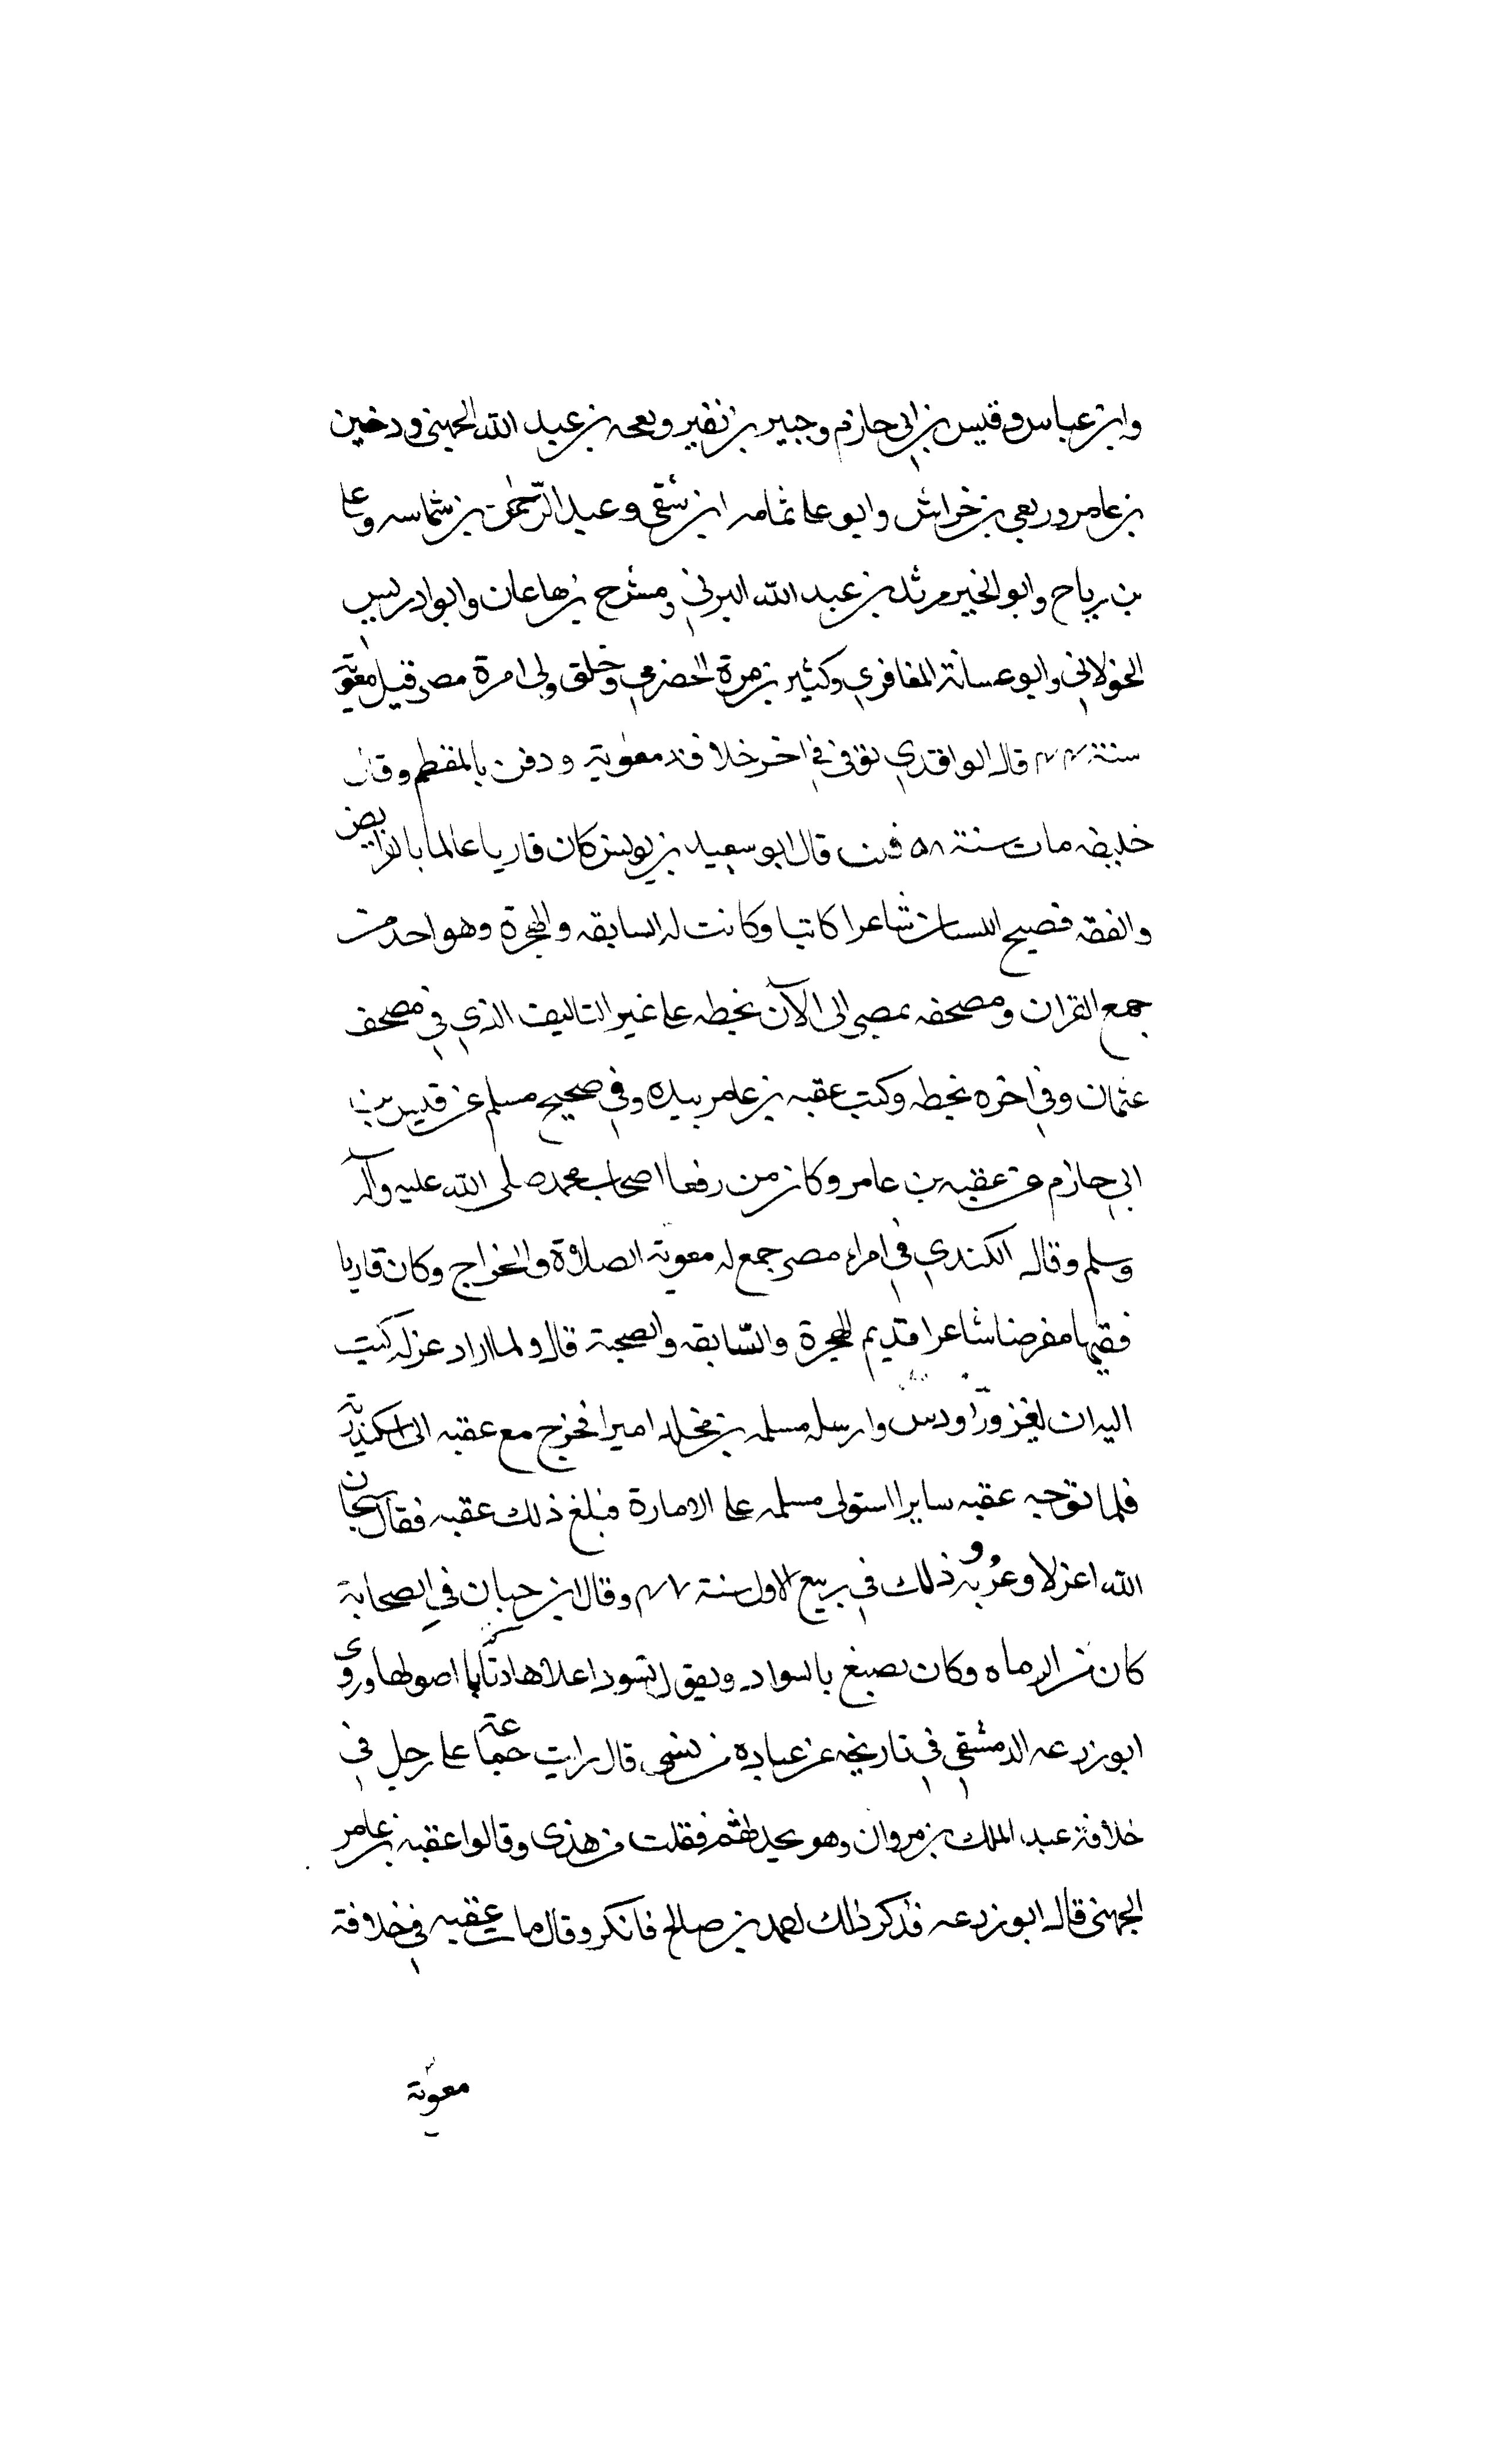 وابن عباس وقيس بن ابي حازم وجبير بن نفير وبعجه بن عبد الله الجهني ودخين
بن عامر وربعي بن خراش وابو عا ثمامه ابن شقي وعبد الرحمن بن شماسه وعلي
بن رباح وابو الخير مرثد بن عبد الله اليزني ومشرح بن هاعان وابوادريس
الخولاني وابو عسانة المغافري وكثير بن مرة الحضرمي وخلق ولي امرة مصر قبل معوية
سنة ٤٤ قال الواقدي توفي في اخر خلافة معوية ودفن بالمقطم وقال
خليفه مات سنة ٥٨ قلت قال ابو سعيد بن يونس كان قاريا عالما بالفرايض
والفقه فصيح اللسان شاعرا كاتبا وكانت له السابقه والهجرة وهو احد من
جمع القران ومصحفه بمصر الى الآن بخطه على غير التاليف الذي في مصحف
عثمان وفي اخره بخطه وكتب عقبه بن عامر بيده وفي صحيح مسلم عن قيس بن
ابي حازم عن عقبه بن عامر وكان من رفعا اصحاب محمد صلى الله عليه وآله
وسلم وقال الكندي في امراء مصر جمع له معوية الصلاة والخراج وكان قاريا
فقيها مفرضا شاعرا قديم الهجرة والسّابقه والصحبة قال ولما اراد عزله كتب
اليه ان يغزو رودس وارسل مسلمه بن مخلد اميرا فخرج مع عقبه الى اسكندرية
فلما توجه عقبه سايرا استولى مسلمه على الامارة فبلغ ذلك عقبه فقال سبحان
الله اعزلا وغربه وذلك في ربيع الاول سنة ٤٧ وقال ابن حبان في الصحابة
كان من الرماه وكان يصبغ بالسواد ويقول نسود اعلاها وتابا اصولها وروى
ابو زرعه الدمشقي في تاريخه عن عباده بن نسي قال رايت جماعة على رجل في
خلافة عبد الملك بن مروان وهو يحدثهم فقلت من هذى وقالوا عقبه بن عامر
الجهني قال ابو زرعه فذكر ذلك لاحمد بن صالح فانكر وقال مات عقبه في خلافة
معوية